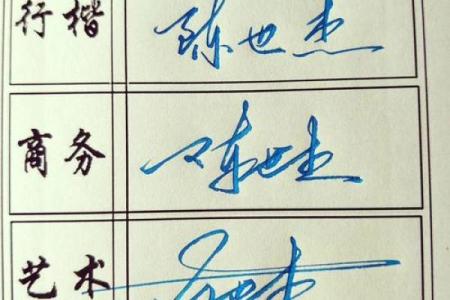 行楷 陈世杰
商务 陈世杰
艺术 陈世杰